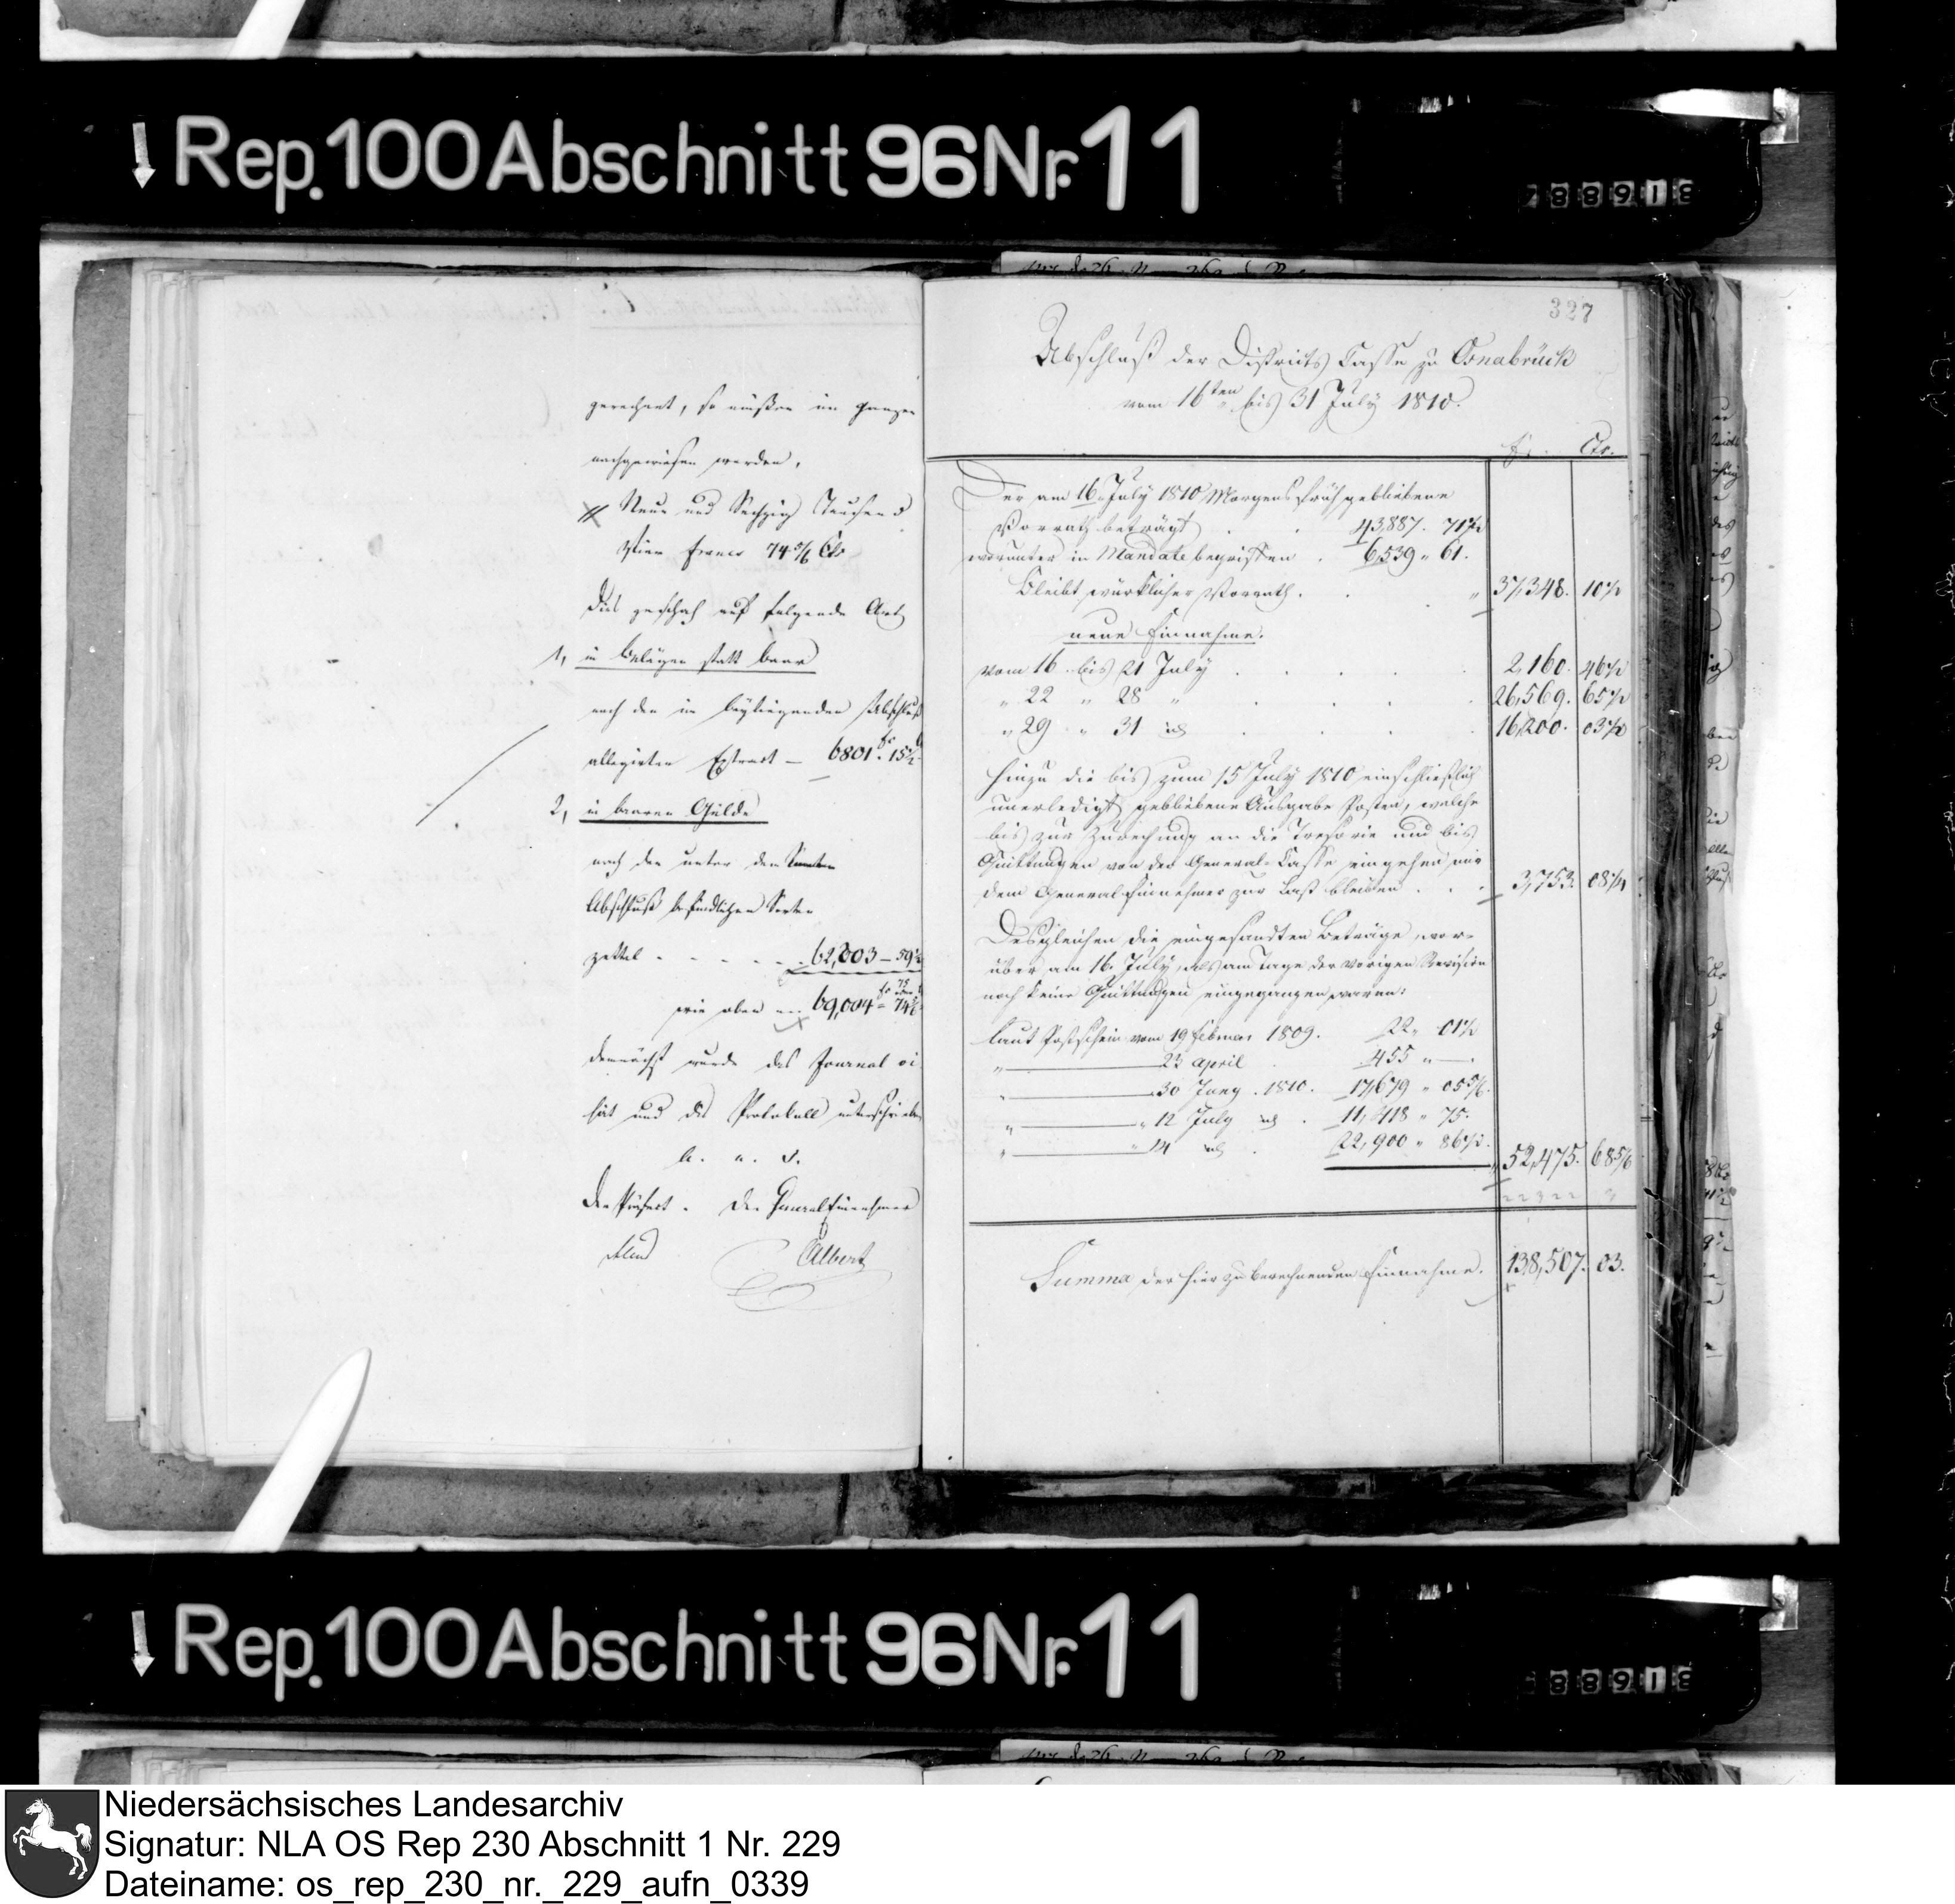 Rep. 100 Abschnitt 96 Nr. 11
gerechnet, so müßen im ganzen
nachgewiesen werden,
Neun und Sechzig Tausend
Vier Francs 74 5/6 Cts
Dies geschah auf folgende Art
1, in Belägen statt baar
nach den im beyliegenden Abschluß
allegirten Extract — 6801 fr. 15 1/2
2, in baarem Gelde
nach den unter dem
Abschluß befindlichen Sorten
zettel - - - - - 62,203 - 59
wie oben 69,004 =
demnächst wurde das Journal
und das Protokoll unterschrieben
a. u. s.
Der Präfect. Der Generaleinnehmer
Albert
327
Abschluß der Districts Casse zu Osnabrück
vom 16ten bis 31 July 1810.
fr. Cts.
Der am 16. July 1810 Morgens früh gebliebene
Vorrath beträgt 43,887. 71 1/2
worunter in Mandate begriffen . 6,539 " 61.
Bleibt würklicher Vorrath . . " 37,348. 10 1/2
neue Einnahme.
vom 16 bis 21 July . . . . . 2,160. 46 1/2
" 22 " 28 " . . . . 26,569. 65 1/2
" 29 " 31 id . . . . 16,200. 03 1/2
Hinzu die bis zum 15 July 1810 einschließlich
unerledigt gebliebene Ausgabe Posten, welche
bis zur Zurechnung an die Tresorie und bis
Quittungen von der General-Casse eingehen, mir
dem General Einnehmer zur Last bleiben . . . 3,753. 08 1/4
Desgleichen die eingesandten Beträge, wor-
über am 16. July, als am Tage der vorigen Revision
noch keine Quittungen eingegangen waren:
laut Postschein vom 19 Februar 1809. 22 " 01 1/2
" 23 April 455 " —.
" 30 Juny . 1810. 17,679 " 05 5/6.
" 12 July id . 11,418 " 75.
" 14 id . 22,900 " 86 1/2.
" 52,475. 68 5/6
Summa der hier zu berechnenden Einnahme. 138,507. 03.
Rep. 100 Abschnitt 96 Nr. 11
Niedersächsisches Landesarchiv
Signatur: NLA OS Rep 230 Abschnitt 1 Nr. 229
Dateiname: os_rep_230_nr._229_aufn_0339